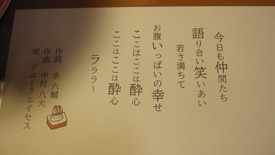 今日も仲間たち
語り合い笑いあい
若さ満ちて
お腹いっぱいの幸せ
ここはここは酔心
ここはここは酔心
ラララ～
作詞 永六輔
作曲 中村八大
唄 デュークエイセス